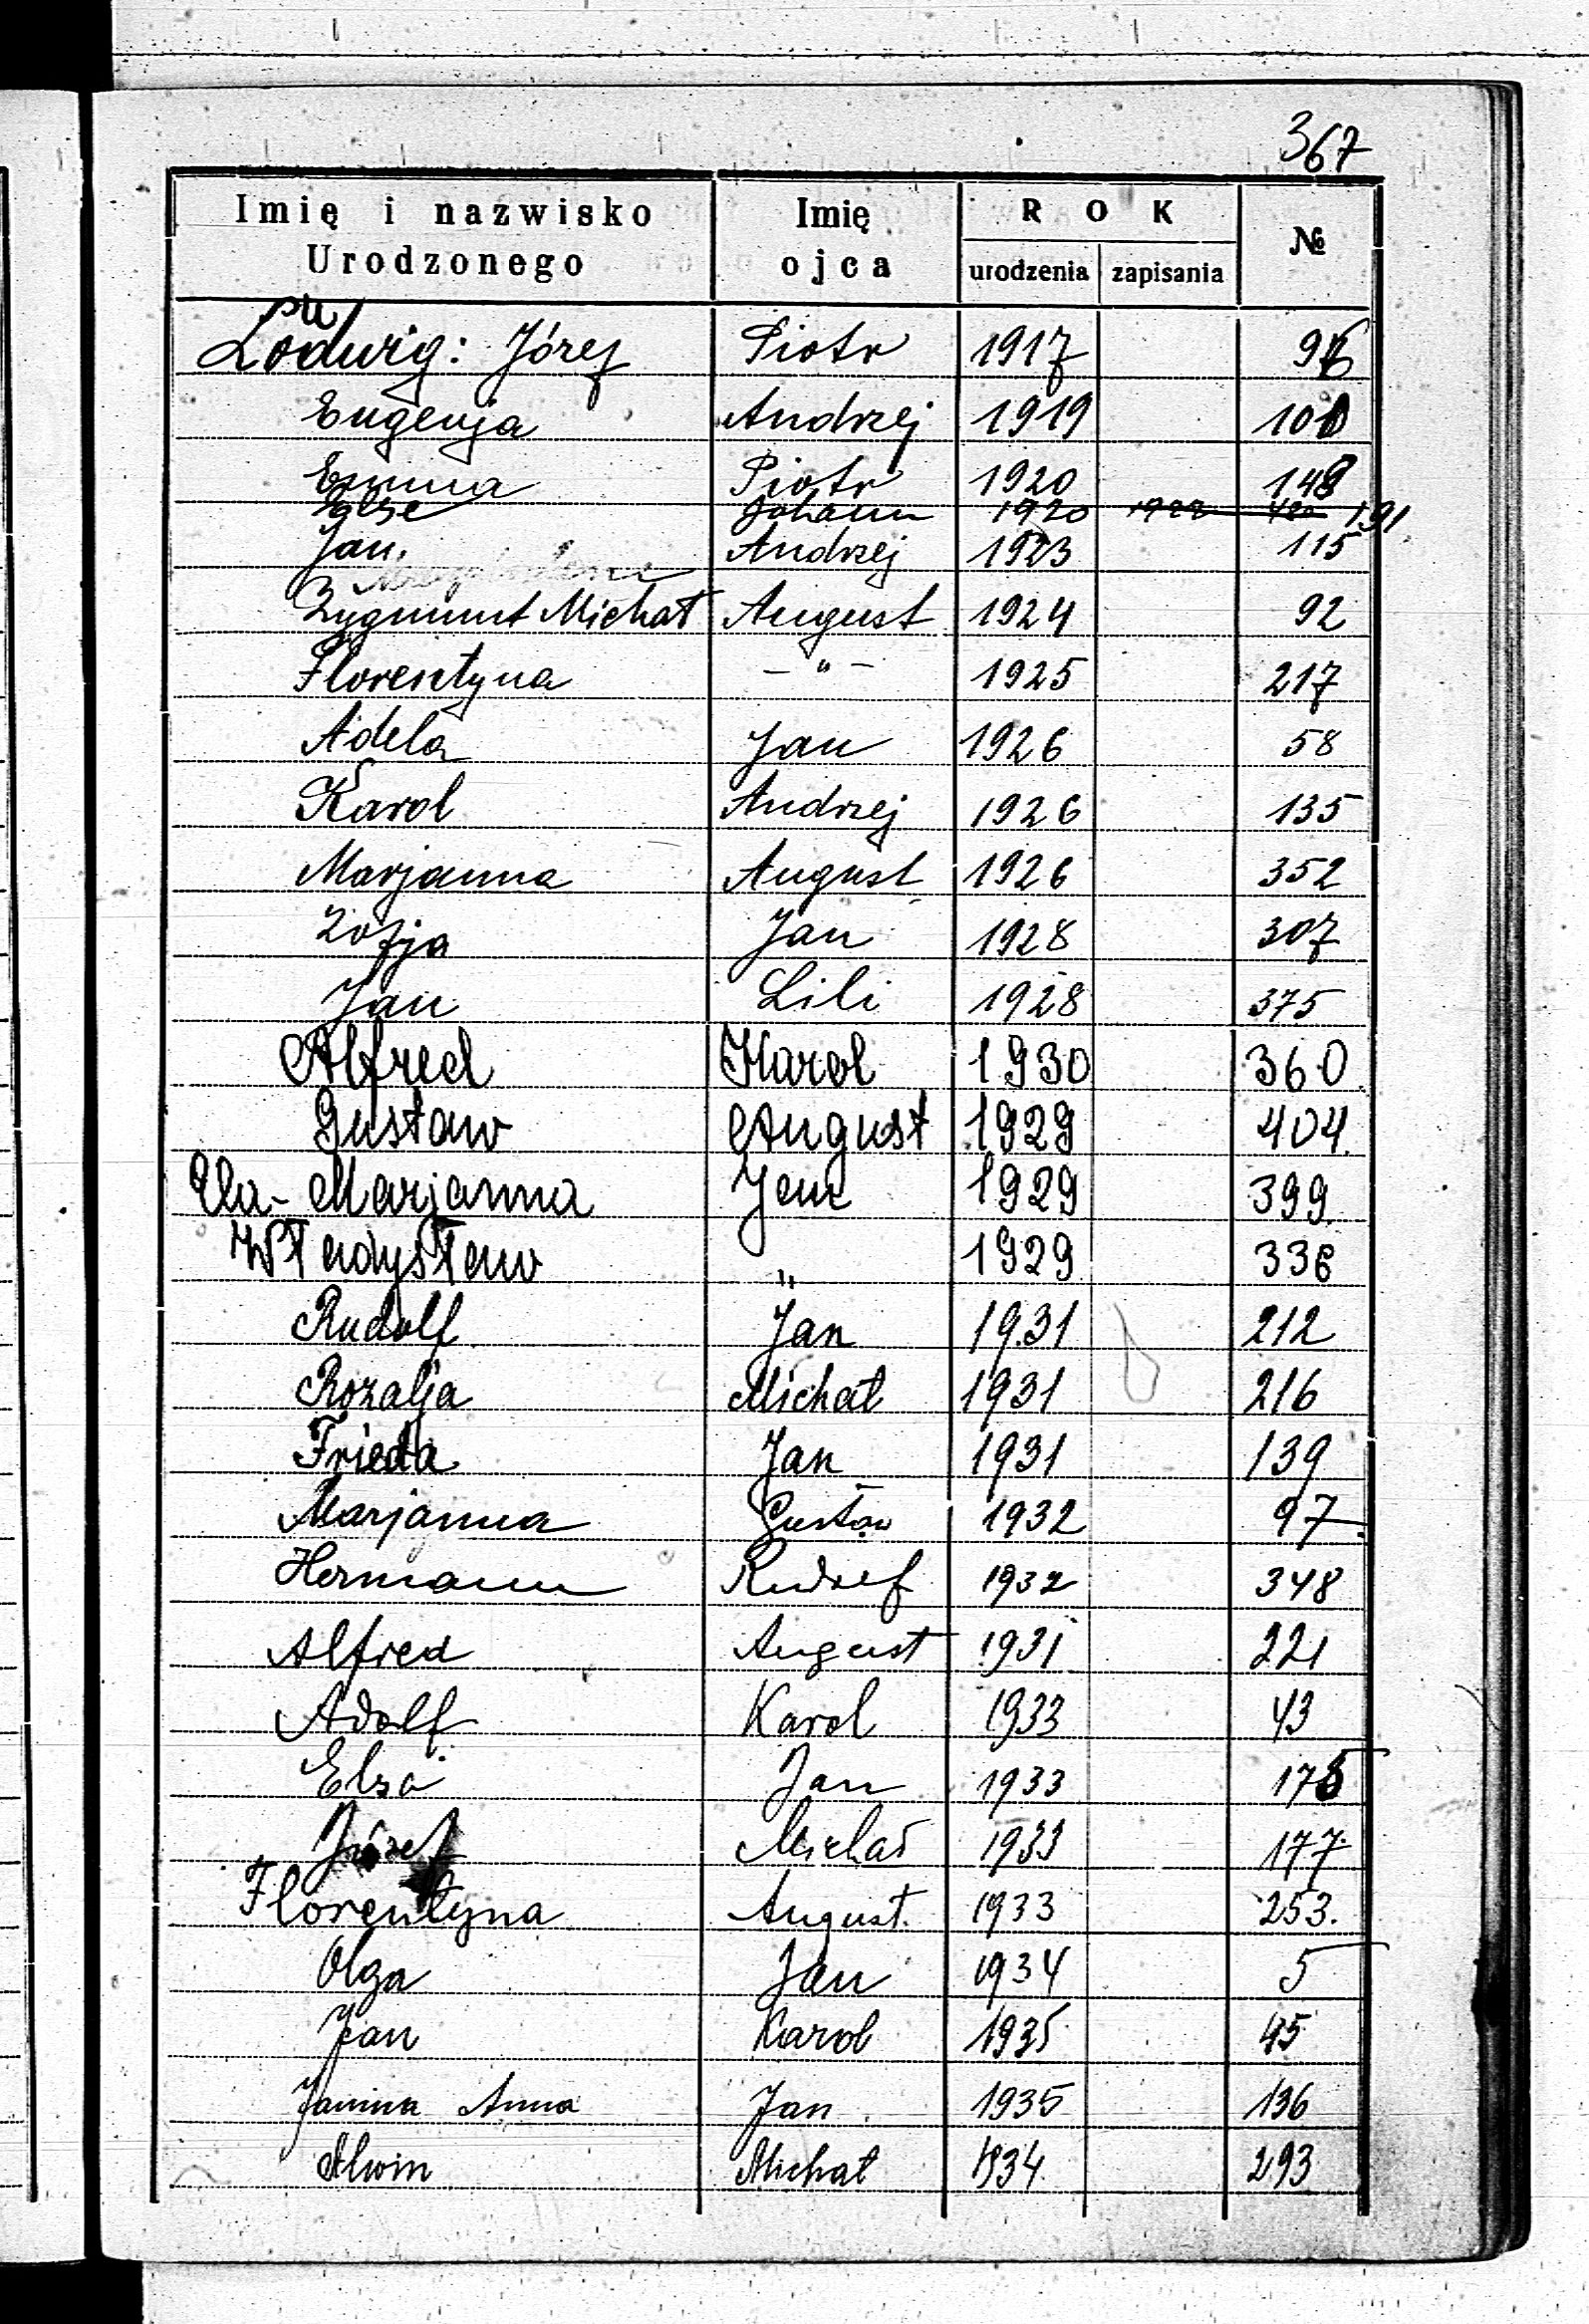 367
Imię i nazwisko Urodzonego Imię ojca ROK urodzenia zapisania №
Lodwig: Józef Piotr 1917 96
Eugenja Andrzej 1919 101
Emma Piotr 1920 148
Else Johann 1920 1922 191
Jan. Andrzej 1923 115
Zygmunt Michał August 1924 92
Florentyna – " – 1925 217
Adela Jan 1926 58
Karol Andrzej 1926 135
Marjanna August 1926 352
Zofja Jan 1928 307
Jan Lili 1928 375
Alfred Karol 1930 360
Gustaw August 1929 404
Marjanna Jan 1929 399
Władysław " 1929 336
Rudolf Jan 1931 212
Rozalja Michał 1931 216
Frieda Jan 1931 139
Marjanna Gustaw 1932 97
Hermann Rudolf 1932 348
Alfred August 1931 221
Adolf Karol 1933 43
Elza Jan 1933 175
Józef Michał 1933 177
Florentyna August. 1933 253.
Olga Jan 1934 5
Jan Karol 1935 45
Janina Anna Jan 1935 136
Alwin Michał 1934 293